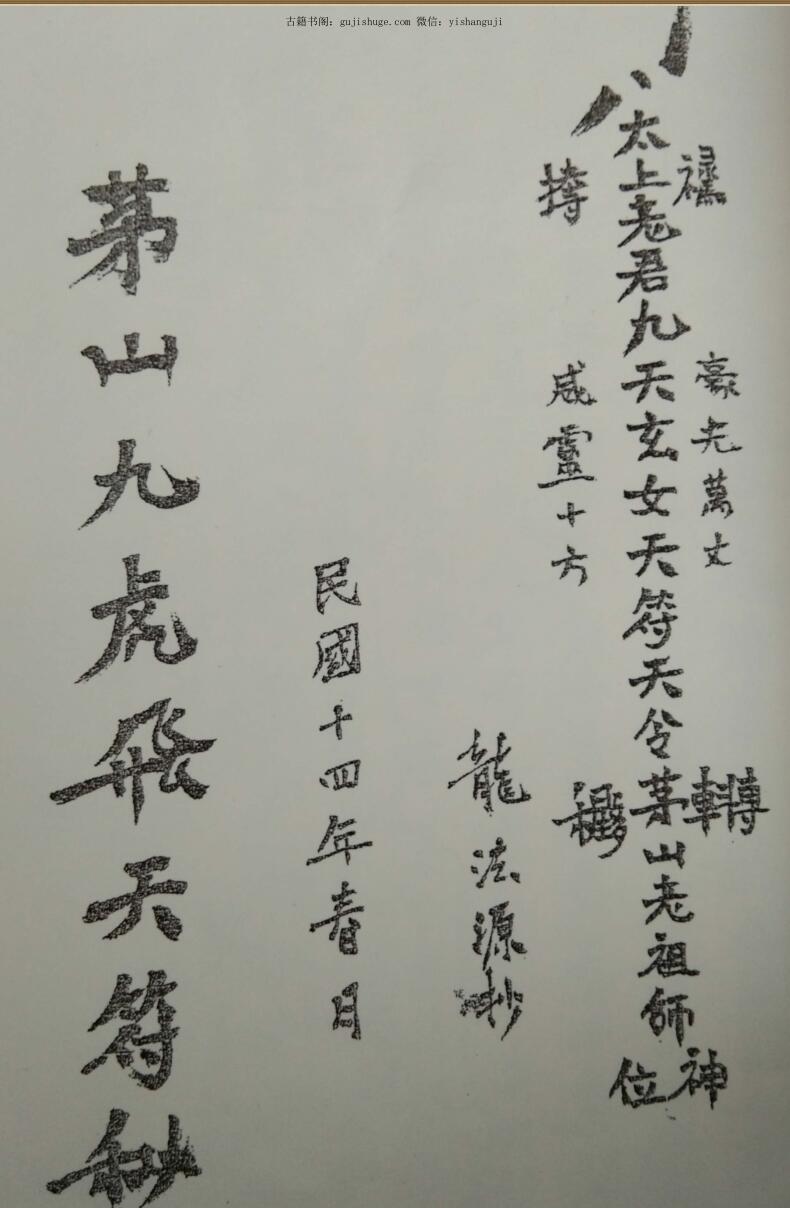 古籍书阁：gujishuge.com 微信：yishanguji
豪光萬丈
太上老君九天玄女天符天令茅山老祖师神位
威靈十方
龍法源抄
民國十四年春月
茅山九虎飛天符秘